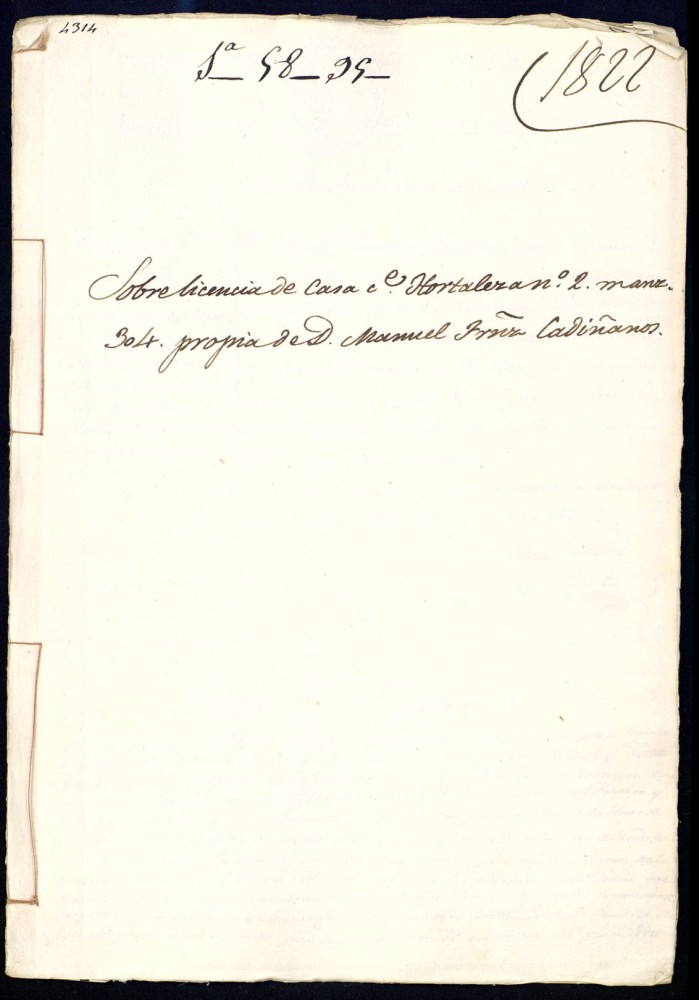 4314
1ª 58 95
1822
Sobre licencia de Casa c.e Hortaleza n.º 2. manz.
304. propia de D. Manuel Frñz Cadiñanos.